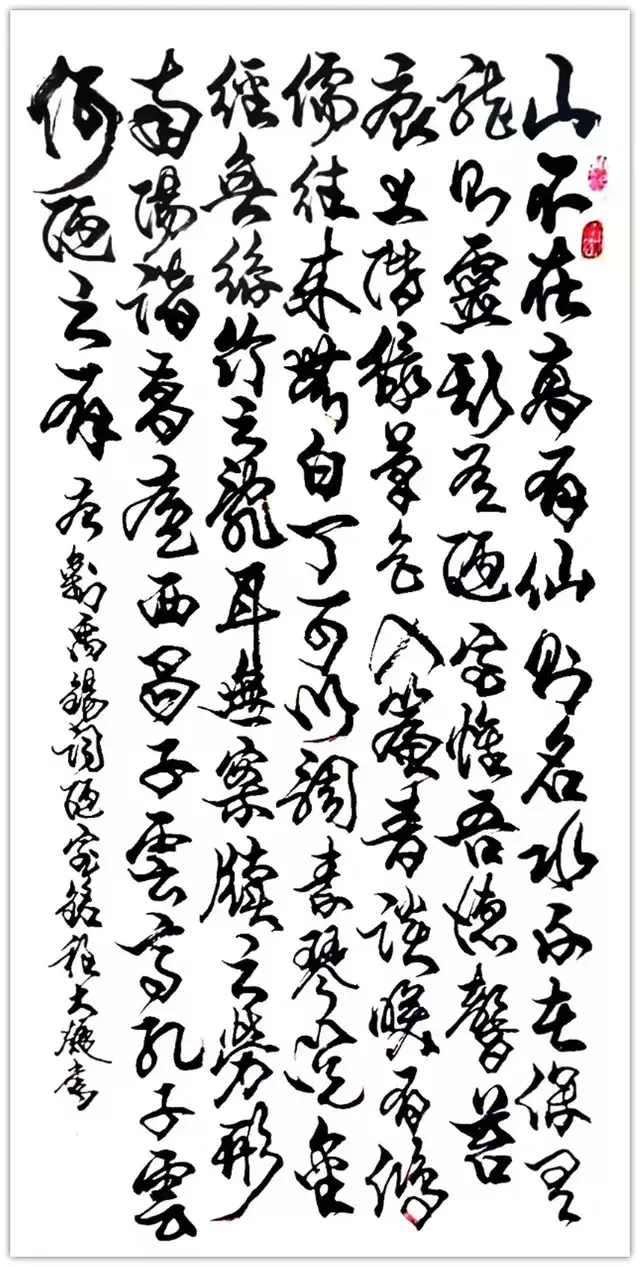 山不在高有仙則名水不在深有
龍則靈斯是陋室惟吾德馨苔
痕上階綠草色入簾青談笑有鴻
儒往來無白丁可以調素琴閱金
經無絲竹之亂耳無案牘之勞形
南陽諸葛廬西蜀子雲亭孔子雲
何陋之有
劉禹錫詞陋室銘程大書